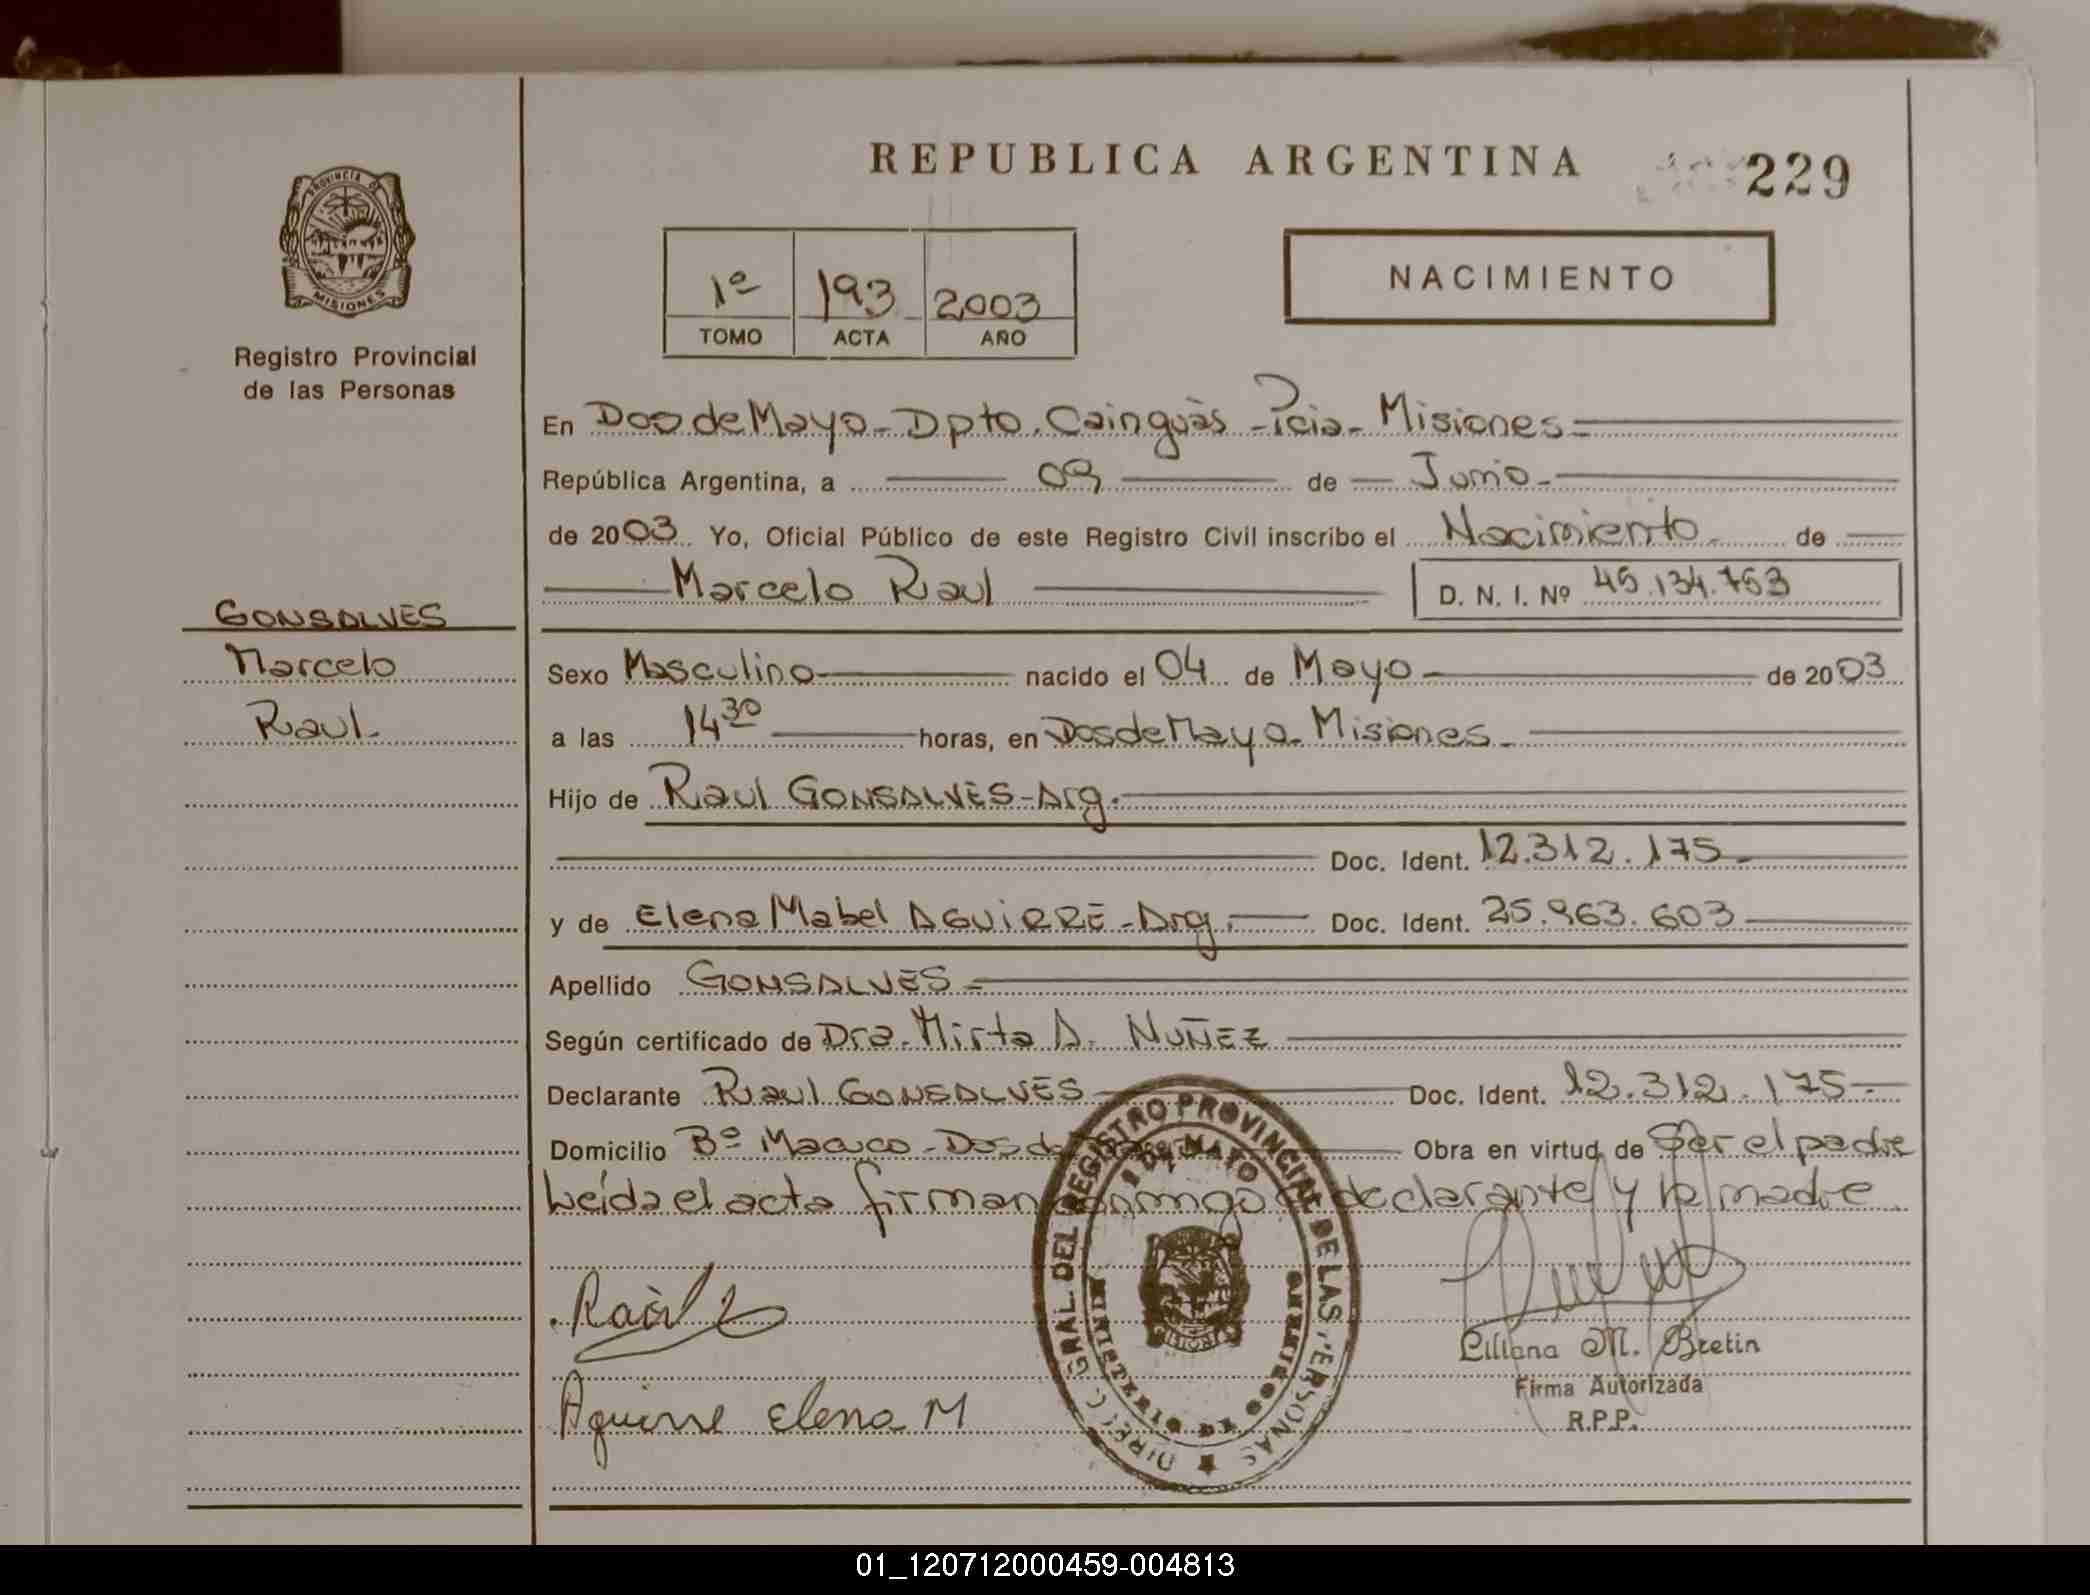 REPUBLICA ARGENTINA
229
PROVINCIA DE
MISIONES
Registro Provincial
de las Personas
1º 193 2003
TOMO ACTA AÑO
NACIMIENTO
En Dos de Mayo - Dpto. Cainguàs - Pcia - Misiones
República Argentina, a 09 de Junio
de 2003 Yo, Oficial Público de este Registro Civil inscribo el Nacimiento de
Marcelo Raul D. N. I. Nº 45.134.753
GONSALVES
Marcelo
Raul
Sexo Masculino nacido el 04 de Mayo de 2003
a las 14 30 horas, en Dos de Mayo - Misiones
Hijo de Raul GONSALVES - Arg.
Doc. Ident. 12.312.175
y de Elena Mabel AGUIRRE - Arg. Doc. Ident. 25.963.603
Apellido GONSALVES
Según certificado de Dra. Mirta A. NUÑEZ
Declarante Raul GONSALVES Doc. Ident. 12.312.175
Domicilio Bº Macuco - Dos de Obra en virtud de Ser el padre
Leída el acta firman conmigo el declarante y la madre
Raùl
Aguirre Elena M
DIREC. GRAL. DEL REGISTRO PROVINCIAL DE LAS PERSONAS
MINISTERIO DE GOBIERNO
Liliana M. Bretin
Firma Autorizada
R.P.P.
01_120712000459-004813